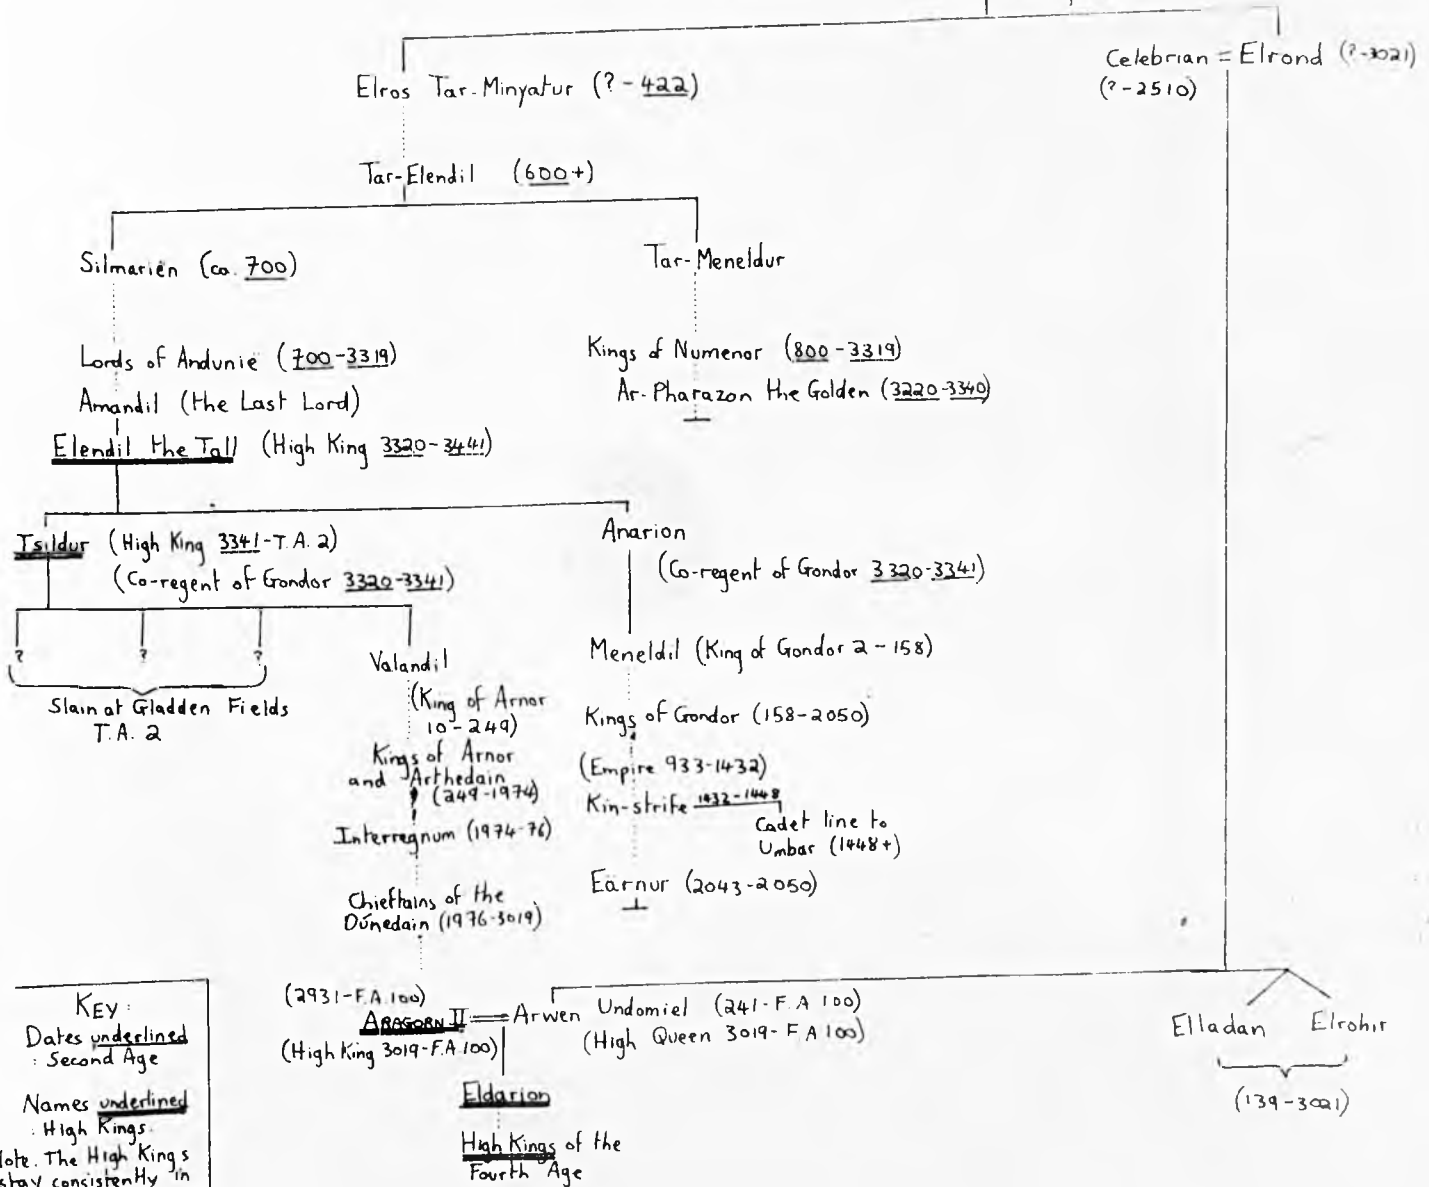 Celebrian = Elrond (?-3021)
(?-2510)
Elros Tar-Minyatur (?-422)
Tar-Elendil (600+)
Silmarien (ca. 700)
Tar-Meneldur
Lords of Andunie (700-3319)
Kings of Numenor (800-3319)
Amandil (the Last Lord)
Ar-Pharazon the Golden (3220-3340)
Elendil the Tall (High King 3320-3441)
Isildur (High King 3341-T.A. 2)
(Co-regent of Gondor 3320-3341)
Anarion
(Co-regent of Gondor 3320-3341)
? ? ?
Slain at Gladden Fields
T.A. 2
Valandil
(King of Arnor
10-249)
Kings of Arnor
and Arthedain
(249-1974)
Interregnum (1974-76)
Chieftains of the
Dúnedain (1976-3019)
Meneldil (King of Gondor 2-158)
Kings of Gondor (158-2050)
(Empire 933-1432)
Kin-strife 1432-1448
Cadet line to
Umbar (1448+)
Earnur (2043-2050)
(2931-F.A.100)
ARAGORN II == Arwen Undomiel (241-F.A 100)
(High King 3019-F.A.100)
(High Queen 3019-F A 100)
Eldarion
High Kings of the
Fourth Age
Elladan Elrohir
(139-3021)
KEY:
Dates underlined
: Second Age
Names underlined
: High Kings.
Note. The High Kings
stay consistently in